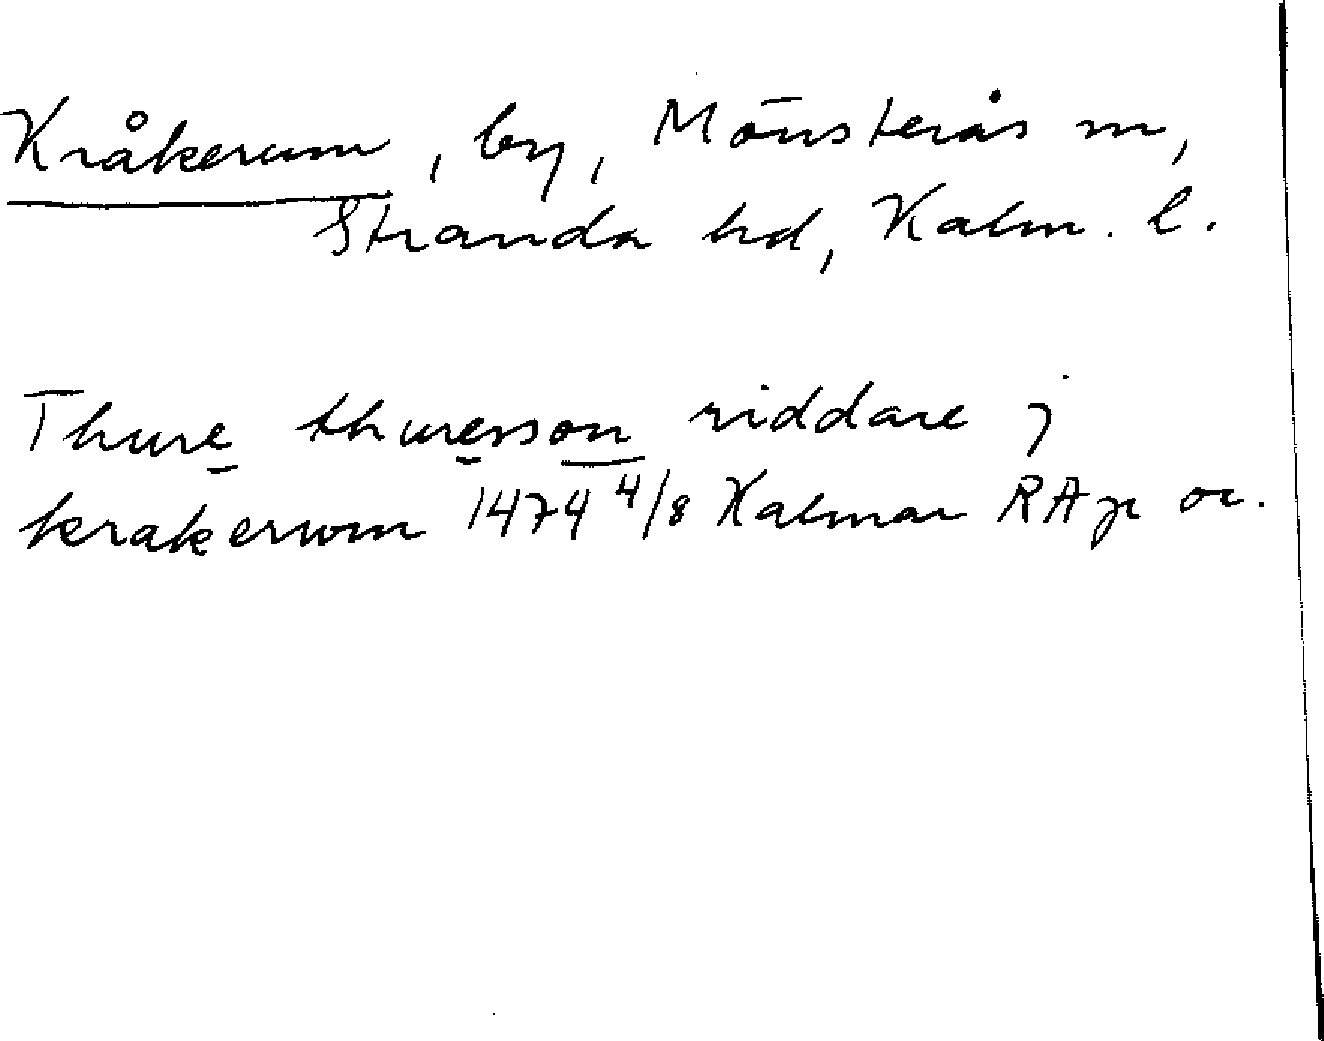 Kråkerum, by, Mönsterås sn,
Stranda hd, Kalm. l.
Thure thuresson riddare j
krakerwm 1474 4/8 Kalmar RAp or.